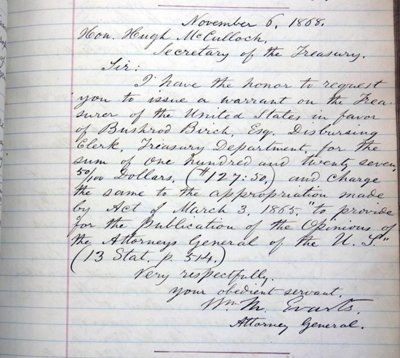 November 6, 1868.
Hon. Hugh McCulloch,
Secretary of the Treasury.
Sir:
I have the honor to request
you to issue a warrant on the Trea-
surer of the United States in favor
of Bushrod Birch, Esq. Disbursing
Clerk, Treasury Department, for the
sum of one hundred and twenty seven
50/100 Dollars, ($127.50,) and charge
the same to the appropriation made
by Act of March 3, 1865, "to provide
for the Publication of the Opinions of
the Attorneys General of the U. S"
(13 Stat. p. 514.)
Very respectfully,
your obedient servant,
Wm. M. Evarts,
Attorney General.